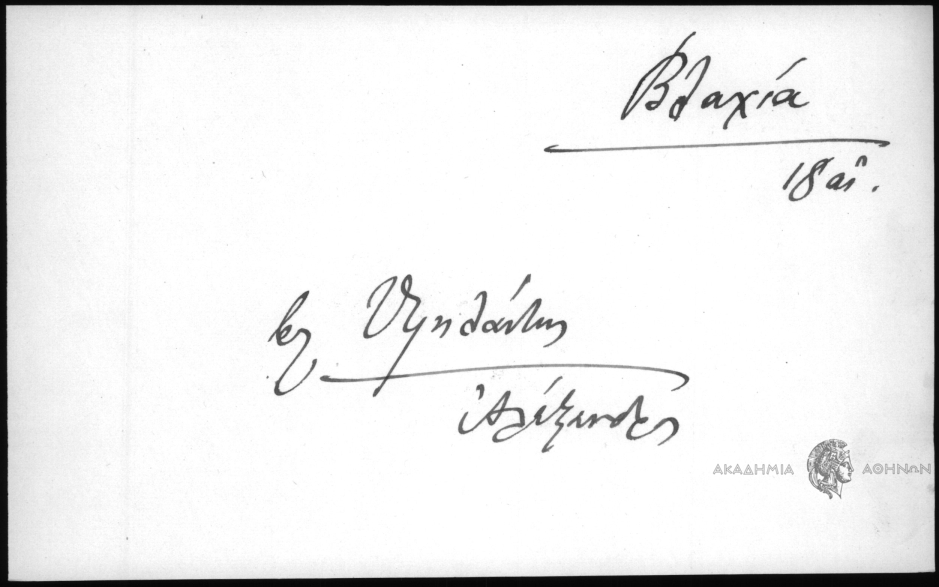 Βλαχία
18 αἰ.
βλ Ὑψηλάντης
Ἀλέξανδρος
ΑΚΑΔΗΜΙΑ ΑΘΗΝΩΝ